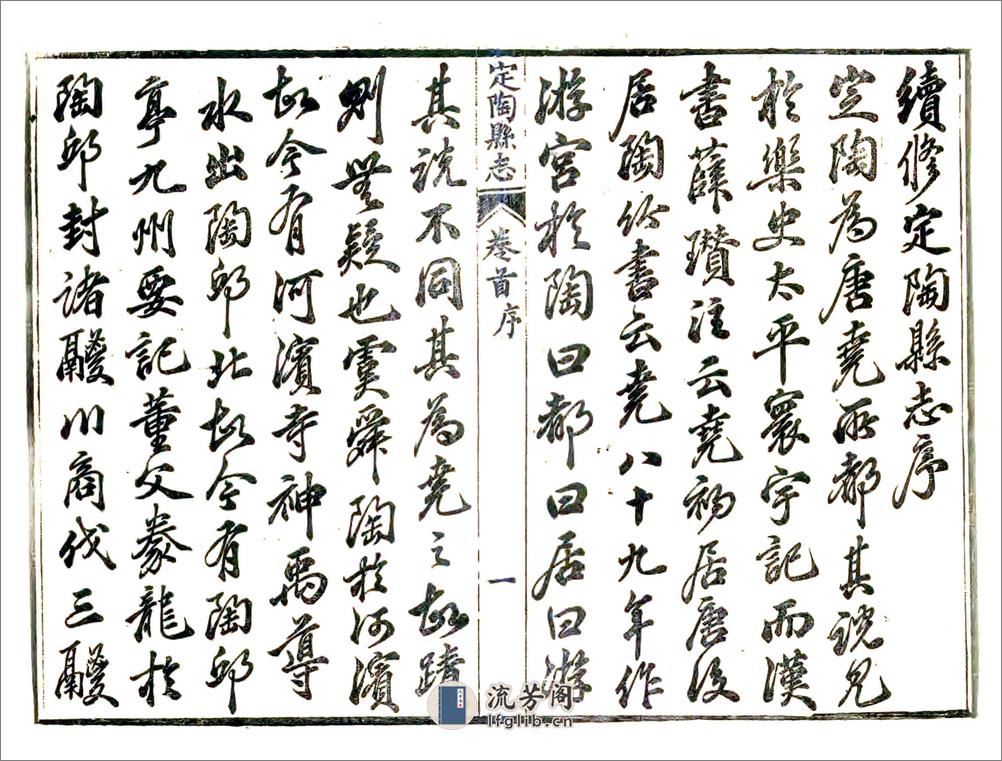 續修定陶縣志序
定陶為唐堯所都其說見
於樂史太平寰宇記而漢
書薛瓚注云堯初居唐後
居陶竹書云堯八十九年作
游宮於陶曰都曰居曰游
定陶縣志 卷首 序 一
其說不同其為堯之故蹟
則無疑也虞舜陶於河濱
故今有河濱寺神禹導
水出陶邱北故今有陶邱
亭九州要記董父豢龍於
陶邱封諸鬷川商伐三鬷
流芳阁
lfglib.cn